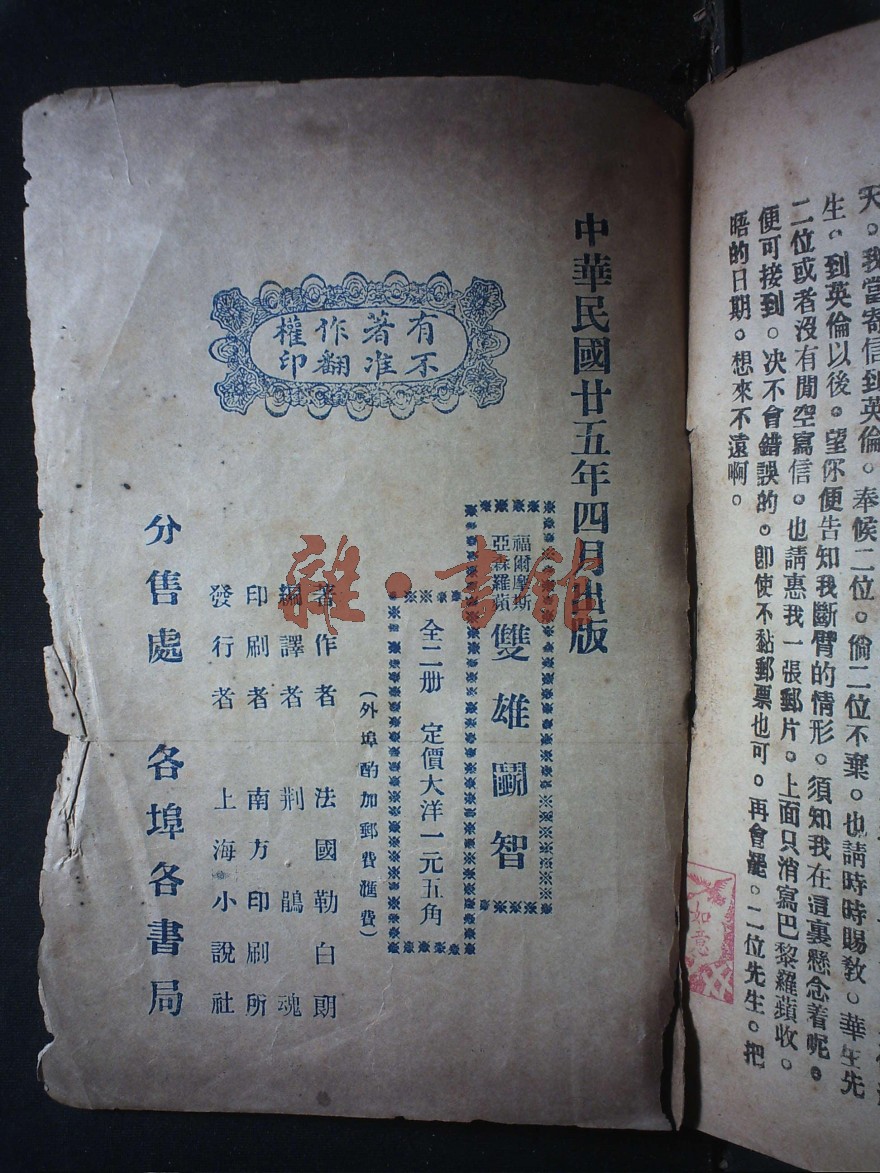 天。我當寄信到英倫。奉候二位。倘二位不棄。也請時時賜教。華生先
生。到英倫以後。望你便告知我斷臂的情形。須知我在這裏懸念着呢。
二位或者沒有閒空寫信。也請惠我一張郵片。上面只消寫巴黎羅蘋收。
便可接到。决不會錯誤的。卽使不黏郵票也可。再會罷。二位先生。把
晤的日期。想來不遠啊。
如意
中華民國廿五年四月出版
有著作權
不准翻印
福爾摩斯
亞森羅蘋
雙雄鬭智
全二册 定價大洋一元五角
(外埠酌加郵費滙費)
著作者 法國勒白朗
編譯者 荆鵑魂
印刷者 南方印刷所
發行者 上海小說社
分售處 各埠各書局
雜·書館